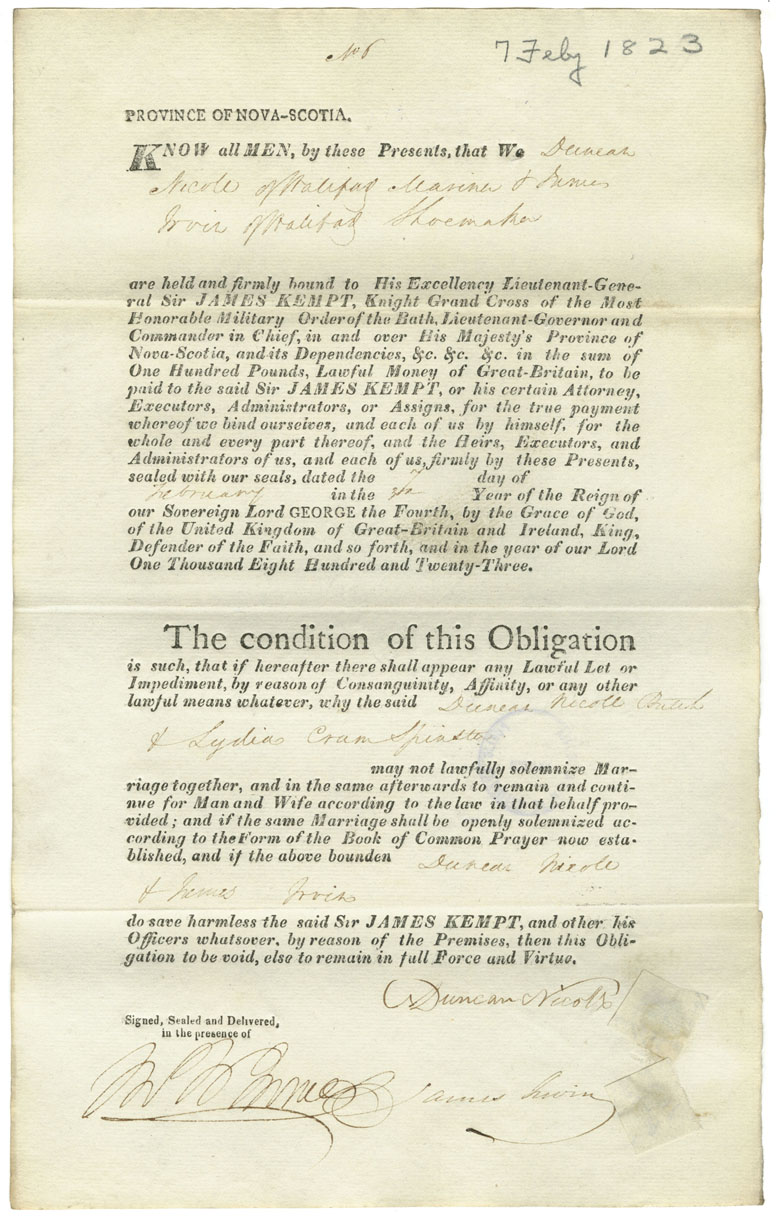 No 6
7 Feby 1823
PROVINCE OF NOVA-SCOTIA.
KNOW all MEN, by these Presents, that We Duncan
Nicole of Halifax Mariner & James
Irvin of Halifax Shoemaker
are held and firmly bound to His Excellency Lieutenant-Gene-
ral Sir JAMES KEMPT, Knight Grand Cross of the Most
Honorable Military Order of the Bath, Lieutenant-Governor and
Commander in Chief, in and over His Majesty's Province of
Nova-Scotia, and its Dependencies, &c. &c. &c. in the sum of
One Hundred Pounds, Lawful Money of Great-Britain, to be
paid to the said Sir JAMES KEMPT, or his certain Attorney,
Executors, Administrators, or Assigns, for the true payment
whereof we bind ourselves, and each of us by himself, for the
whole and every part thereof, and the Heirs, Executors, and
Administrators of us, and each of us, firmly by these Presents,
sealed with our seals, dated the 7 day of
February in the Year of the Reign of
our Sovereign Lord GEORGE the Fourth, by the Grace of God,
of the United Kingdom of Great-Britain and Ireland, King,
Defender of the Faith, and so forth, and in the year of our Lord
One Thousand Eight Hundred and Twenty-Three.
The condition of this Obligation
is such, that if hereafter there shall appear any Lawful Let or
Impediment, by reason of Consanguinity, Affinity, or any other
lawful means whatever, why the said Duncan Nicole Batch
& Lydia Cram Spinster
may not lawfully solemnize Mar-
riage together, and in the same afterwards to remain and conti-
nue for Man and Wife according to the law in that behalf pro-
vided; and if the same Marriage shall be openly solemnized ac-
cording to the Form of the Book of Common Prayer now esta-
blished, and if the above bounden Duncan Nicole
& James Irvin
do save harmless the said Sir JAMES KEMPT, and other his
Officers whatsover, by reason of the Premises, then this Obli-
gation to be void, else to remain in full Force and Virtue.
Duncan Nicoll
Signed, Sealed and Delivered,
in the presence of
James Irwin